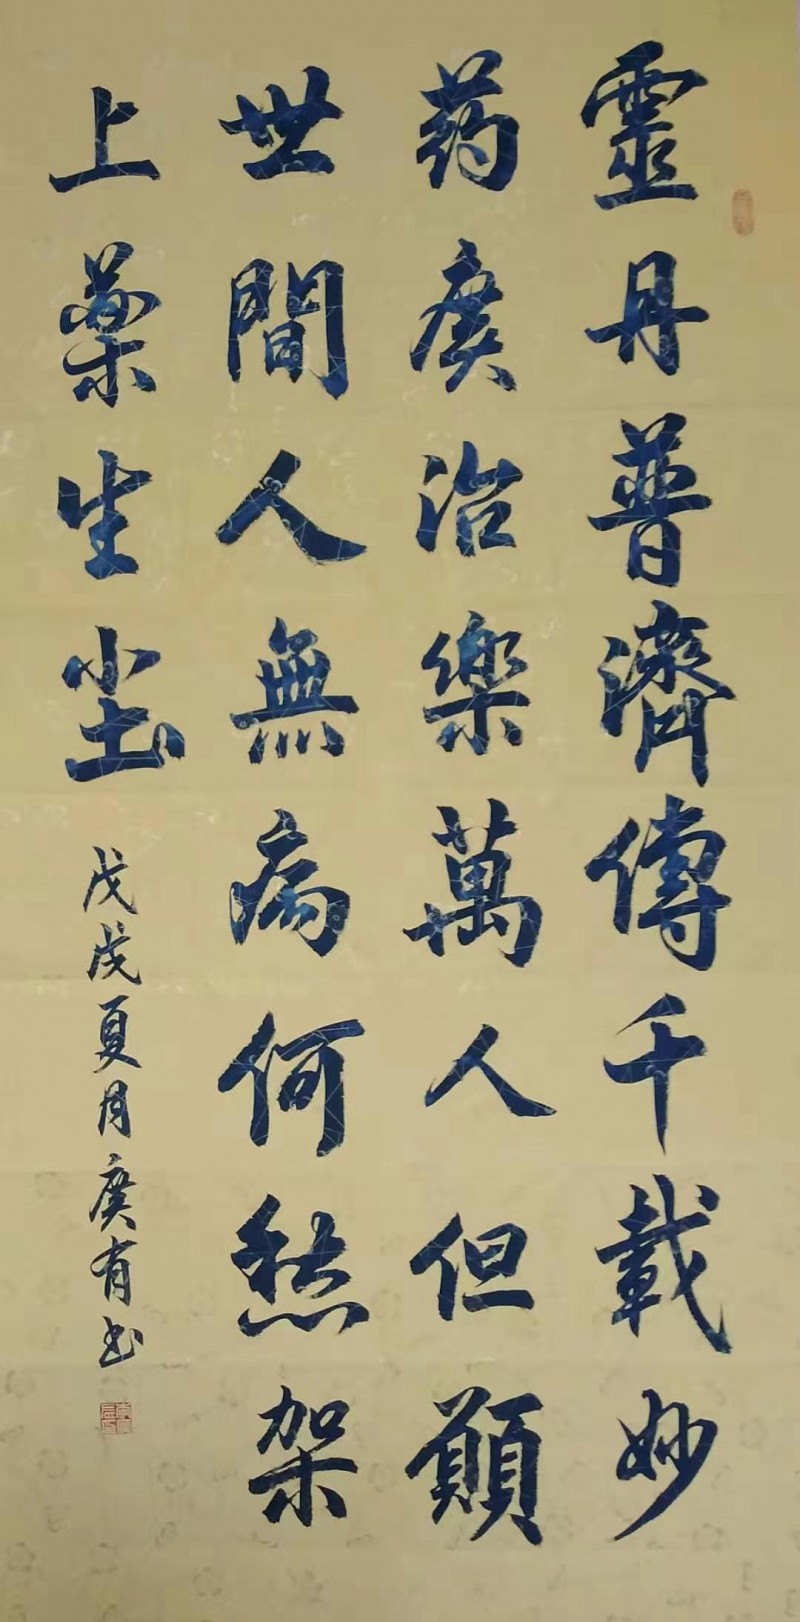 靈丹普濟傳千載妙
药廣治樂萬人但願
世間人無病何愁架
上藥生尘
戊戌夏月廣有书